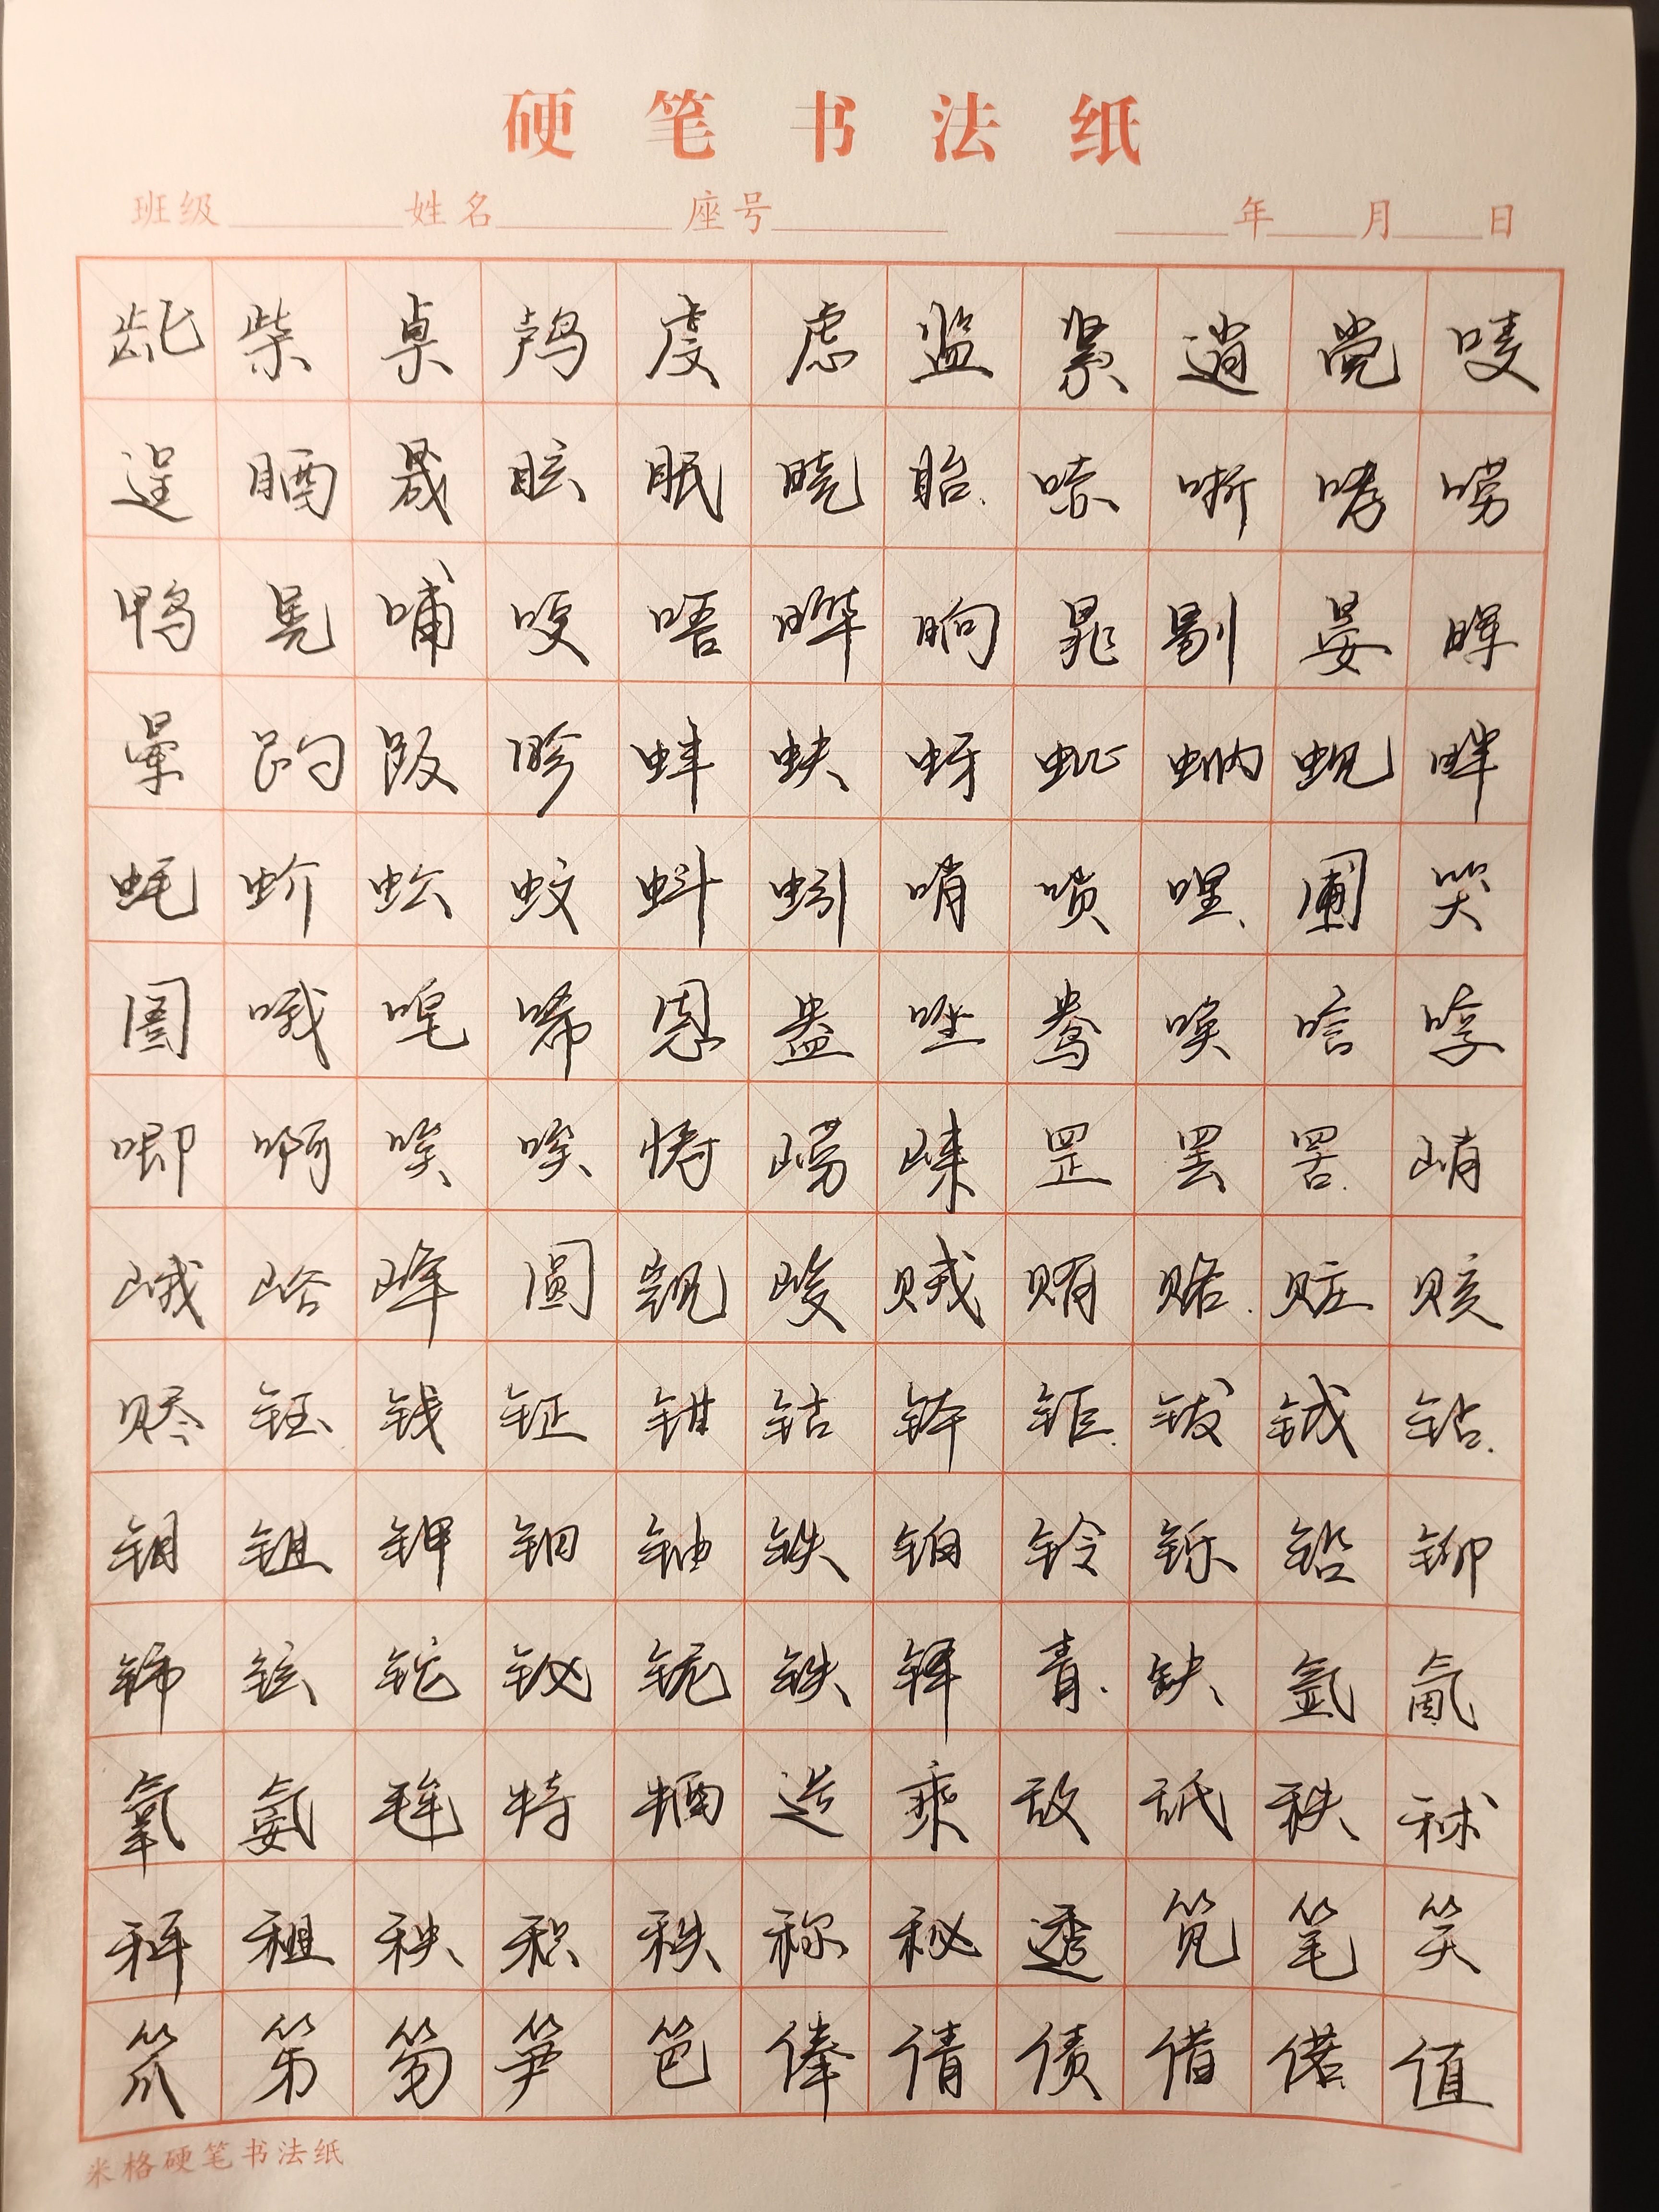 硬笔书法纸
班级 姓名 座号 年 月 日
龀柴桌鸬虔虑监紧逍党唛
逞晒晟眩眠晓眙哧哳哮唠
鸭晃哺哽唔晔晌晁剔晏晖
晕趵趿畛蚌蚨蚜蚍蚋蚬畔
蚝蚧蚣蚊蚪蚓哨唢哩圃哭
圄哦唣唏恩盎唑鸯唤唁哼
唧啊唉唆帱崂崃罡罢罟峭
峨峪峰圆觊峻贼贿赂赃赅
赆钰钱钲钳钴钵钷钹钺钻
钼钽钾钿铀铁铂铃铄铅铆
铈铉铊铋铌铁铎眚缺氩氤
氧氨毪特牺造乘敌舐秩秫
秤租秧积秩称秘透笕笔笑
笊笫笏笋笆俸倩债借偌值
米格硬笔书法纸